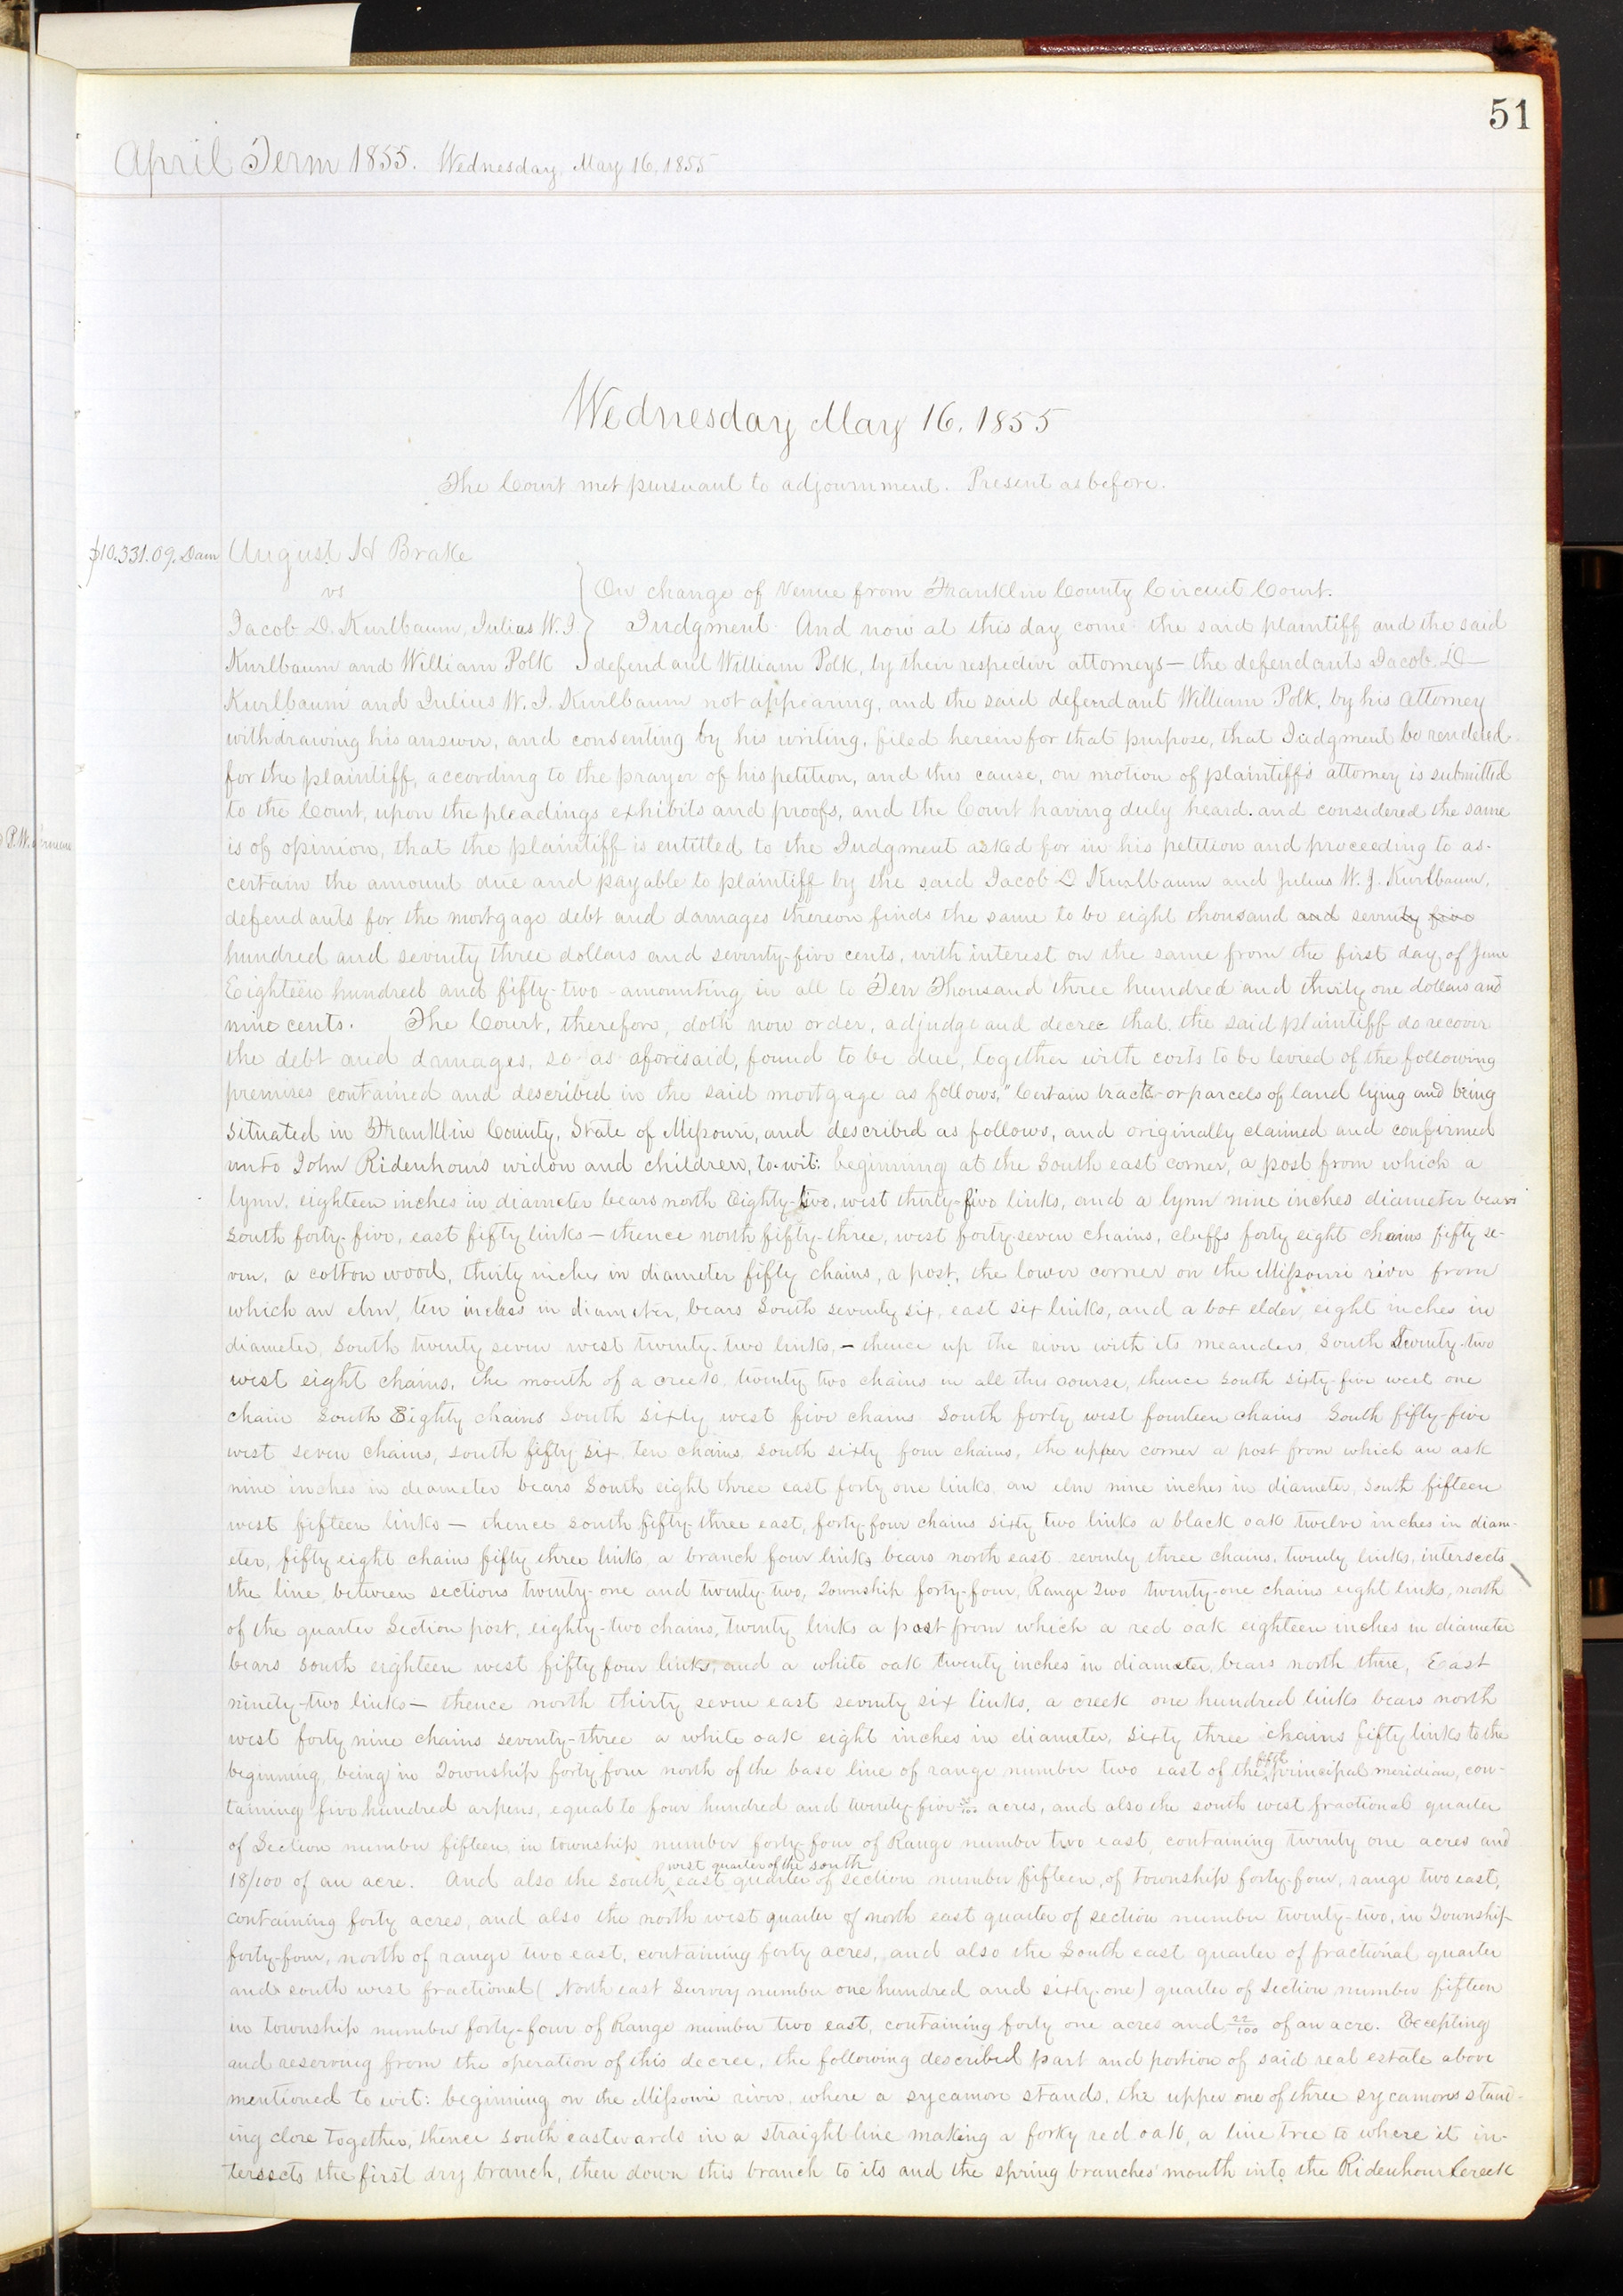 51
April Term 1855. Wednesday, May 16. 1855
Wednesday May 16. 1855
The Court met pursuant to adjournment. Present as before.
$10.331.09. Dam August H Brake
vs
On change of Venue from Franklin County Circuit Court.
Jacob D. Kurlbaum, Julius W. J. Judgment. And now at this day come the said plaintiff and the said
Kurlbaum and William Polk defendant William Polk, by their respective attorneys — the defendants Jacob D
Kurlbaum and Julius W. J. Kurlbaum not appearing, and the said defendant William Polk, by his attorney
withdrawing his answer, and consenting by his writing, filed herein for that purpose, that Judgment be rendered
for the plaintiff, according to the prayer of his petition, and this cause, on motion of plaintiff's attorney is submitted
to the Court, upon the pleadings exhibits and proofs, and the Court having duly heard and considered the same
is of opinion, that the plaintiff is entitled to the Judgment asked for in his petition and proceeding to as-
certain the amount due and payable to plaintiff by the said Jacob D Kurlbaum and Julius W. J. Kurlbaum,
defendants for the mortgage debt and damages thereon finds the same to be eight thousand and seventy five
hundred and seventy three dollars and seventy-five cents, with interest on the same from the first day of June
Eighteen hundred and fifty-two amounting in all to Ten Thousand three hundred and thirty one dollars and
nine cents. The Court, therefore, doth now order, adjudge and decree that the said plaintiff do recover
the debt and damages, so as aforesaid, found to be due, together with costs to be levied of the following
premises contained and described in the said mortgage as follows, "Certain tracts or parcels of land lying and being
situated in Franklin County, State of Missouri, and described as follows, and originally claimed and confirmed
unto John Ridenhours widow and children, to-wit: beginning at the South east corner, a post from which a
lynn, eighteen inches in diameter bears north Eighty-two, west thirty-five links, and a lynn nine inches diameter bears
South forty-five, east fifty links — thence north fifty-three, west forty-seven chains, cluffs forty eight chains fifty se-
ven, a cotton wood, thirty inches in diameter fifty chains, a post, the lower corner on the Missouri river from
which an elm, ten inches in diameter, bears South seventy six, east six links, and a box elder, eight inches in
diameter, South twenty seven west twenty-two links, — thence up the river with its meanders South twenty-two
west eight chains, the mouth of a creek, twenty two chains in all this course, thence South sixty-five west one
chain South Eighty chains South sixty west five chains South forty west fourteen chains South fifty-five
west seven chains, south fifty six ten chains south sixty four chains, the upper corner a post from which an ask
nine inches in diameter bears South eight three east forty one links, an elm nine inches in diameter, South fifteen
west fifteen links — thence South fifty-three east, forty-four chains sixty two links a black oak twelve inches in diam-
eter, fifty eight chains fifty three links, a branch four links bears north east seventy three chains, twenty links, intersects
the line between sections twenty-one and twenty-two, Township forty-four, Range Two twenty-one chains eight links, north
of the quarter Section post, eighty-two chains, twenty links a post from which a red oak eighteen inches in diameter
bears South eighteen west fifty four links, and a white oak twenty inches in diameter, bears north three, East
ninety-two links — thence north thirty seven east seventy six links, a creek one hundred links bears north
west forty nine chains seventy-three a white oak eight inches in diameter, sixty three chains fifty links to the
beginning, being in Township forty four north of the base line of range number two east of the fifth principal meridian, con-
taining five hundred arpens, equal to four hundred and twenty-five acres, and also the south west fractional quarter
of Section number fifteen, in township number forty-four of Range number two east, containing twenty one acres and
18/100 of an acre. And also the South west quarter of the south east quarter of section number fifteen, of township forty-four, range two east,
containing forty acres, and also the north west quarter of north east quarter of section number twenty-two, in Township
forty-four, north of range two east, containing forty acres, and also the South east quarter of fractional quarter
and south west fractional (North east Survey number one hundred and sixty-one) quarter of Section number fifteen
in township number forty-four of Range number two east, containing forty one acres and 22/100 of an acre. Excepting
and reserving from the operation of this decree, the following described part and portion of said real estate above
mentioned to wit: beginning on the Missouri river, where a sycamore stands, the upper one of three sycamores stand-
ing close together, thence South eastwards in a straight line making a forky red oak, a line tree to where it in-
tersects the first dry branch, then down this branch to its and the spring branches' mouth into the Ridenhour Creek